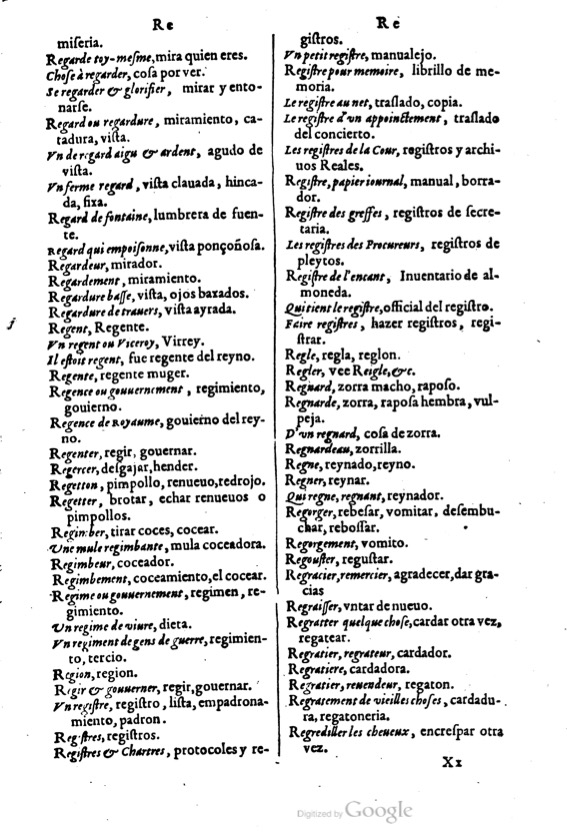 Re
miſeria.
Regarde toy-meſme, mira quien eres.
Choſe à regarder, coſa por ver.
Se regarder & glorifier, mirar y ento-
narſe.
Regard ou regardure, miramiento, ca-
tadura, viſta.
Vn de regard aigu & ardent, agudo de
viſta.
Vn ferme regard, viſta clauada, hinca-
da, fixa.
Regard de fontaine, lumbrera de fuen-
te.
Regard qui empoiſonne, viſta ponçoñoſa.
Regardeur, mirador.
Regardement, miramiento.
Regardure baſſe, viſta, ojos baxados.
Regardure de trauers, viſta ayrada.
Regent, Regente.
Vn regent ou Viceroy, Virrey.
Il eſtoit regent, fue regente del reyno.
Regente, regente muger.
Regence ou gouuernement, regimiento,
gouierno.
Regence de Royaume, gouierno del rey-
no.
Regenter, regir, gouernar.
Regercer, deſgajar, hender.
Regetton, pimpollo, renueuo, redrojo.
Regetter, brotar, echar renueuos o
pimpollos.
Regimber, tirar coces, cocear.
Vne mule regimbante, mula coceadora.
Regimbeur, coceador.
Regimbement, coceamiento, el cocear.
Regime ou gouuernement, regimen, re-
gimiento.
Vn regime de viure, dieta.
Vn regiment de gens de guerre, regimien-
to, tercio.
Region, region.
Regir & gouuerner, regir, gouernar.
Vn regiſtre, regiſtro, liſta, empadrona-
miento, padron.
Regiſtres, regiſtros.
Regiſtres & Chartres, protocoles y re-
Re
giſtros.
Vn petit regiſtre, manualejo.
Regiſtre pour memoire, librillo de me-
moria.
Le regiſtre au net, traſlado, copia.
Le regiſtre d'vn appoinctement, traſlado
del concierto.
Les regiſtres de la Cour, regiſtros y archi-
uos Reales.
Regiſtre, papier iournal, manual, borra-
dor.
Regiſtre des greffes, regiſtros de ſecre-
taria.
Les regiſtres des Procureurs, regiſtros de
pleytos.
Regiſtre de l'encant, Inuentario de al-
moneda.
Qui tient le regiſtre, official del regiſtro.
Faire regiſtres, hazer regiſtros, regi-
ſtrar.
Regle, regla, reglon.
Regler, vee Reigle, &c.
Regnard, zorra macho, rapoſo.
Regnarde, zorra, rapoſa hembra, vul-
peja.
D'vn regnard, coſa de zorra.
Regnardeau, zorrilla.
Regne, reynado, reyno.
Regner, reynar.
Qui regne, regnant, reynador.
Regorger, rebeſar, vomitar, deſembu-
char, reboſſar.
Regorgement, vomito.
Regouſter, reguſtar.
Regracier, remercier, agradecer, dar gra-
cias
Regraiſſer, vntar de nueuo.
Regratter quelque choſe, cardar otra vez,
regatear.
Regratier, regrateur, cardador.
Regratiere, cardadora.
Regratier, reuendeur, regaton.
Regratement de vieilles choſes, cardadu-
ra, regatoneria.
Regrediller les cheueux, encreſpar otra
vez.
Xx
Digitized by Google